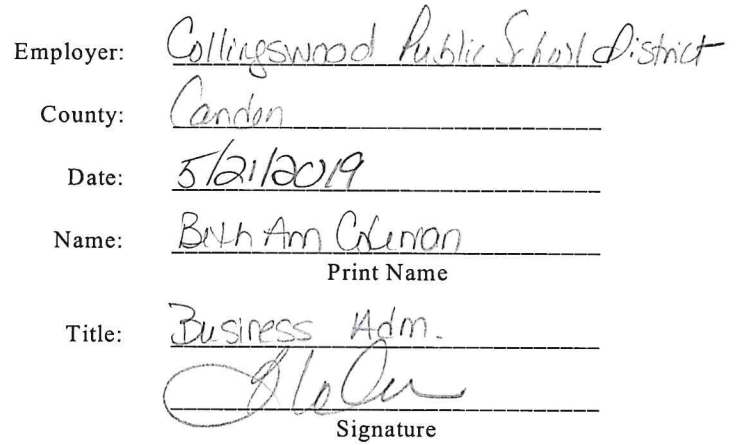 Employer: Collingswood Public School District
County: Camden
Date: 5/21/2019
Name: Beth Ann Coleman
Print Name
Title: Business Adm.
Signature